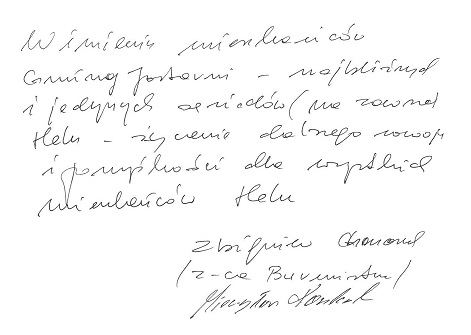 W imieniu mieszkańców
Gminy Jastarni – najbliższych
i jedynych sąsiadów (na zawsze)
Helu – życzenie dalszego rozwoju
i pomyślności dla wszystkich
mieszkańców Helu
Zbigniew
(z-ca Burmistrza)